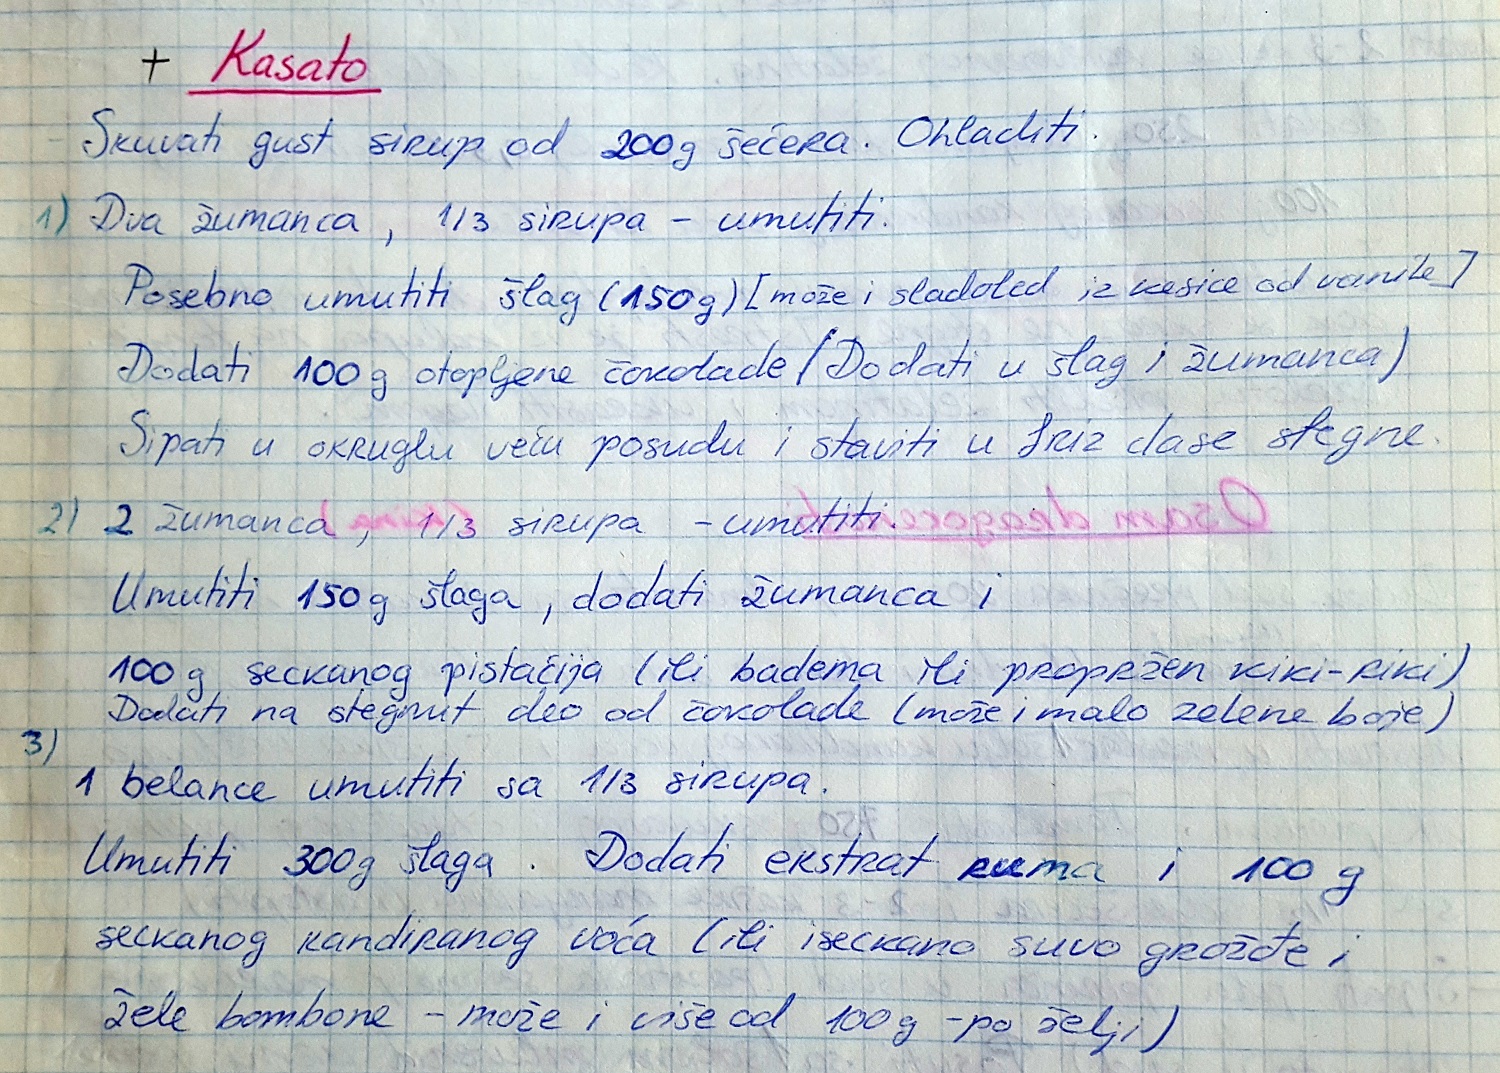 + Kasato
Skuvati gust sirup od 200g šećera. Ohladiti.
1) Dva žumanca, 1/3 sirupa - umutiti.
Posebno umutiti šlag (150g) [može i sladoled iz kesice od vanile]
Dodati 100g otopljene čokolade (Dodati u šlag i žumanca)
Sipati u okruglu veću posudu i staviti u friz da se stegne.
2) 2 žumanca, 1/3 sirupa - umutiti.
Umutiti 150g šlaga, dodati žumanca i
100g seckanog pistaćija (ili badema ili propržen kiki-riki)
Dodati na stegnut deo od čokolade (može i malo zelene boje)
3)
1 belance umutiti sa 1/3 sirupa.
Umutiti 300g šlaga. Dodati ekstrat ruma i 100g
seckanog kandiranog voća (ili iseckano suvo grožđe i
žele bombone - može i više od 100g - po želji)